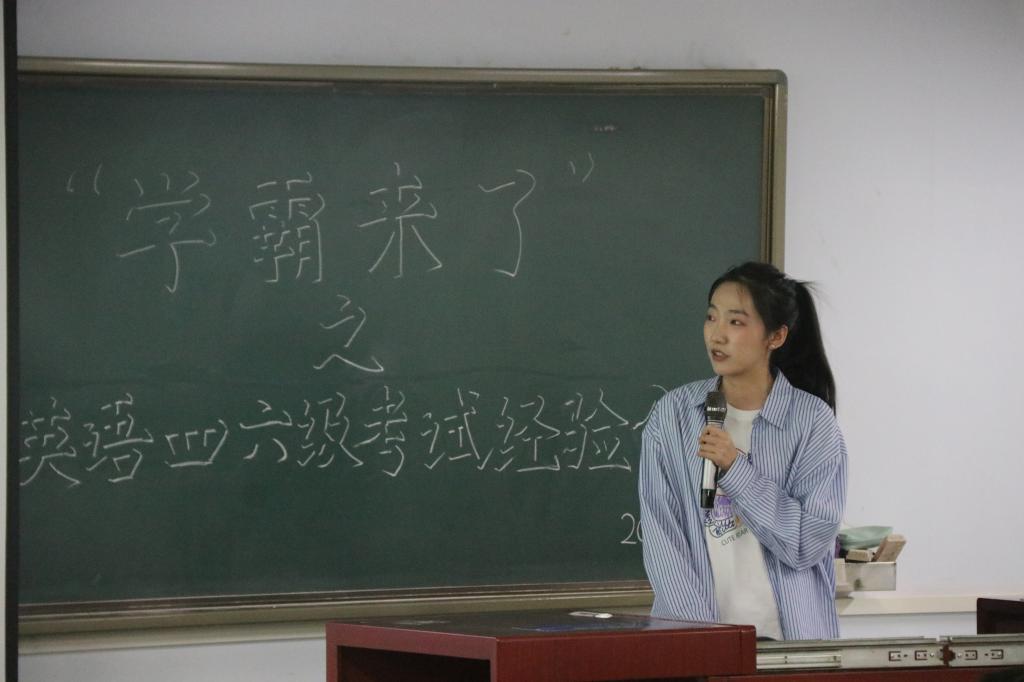 “学霸来了”
之
英语四六级考试经验
20
CUTE BEAR